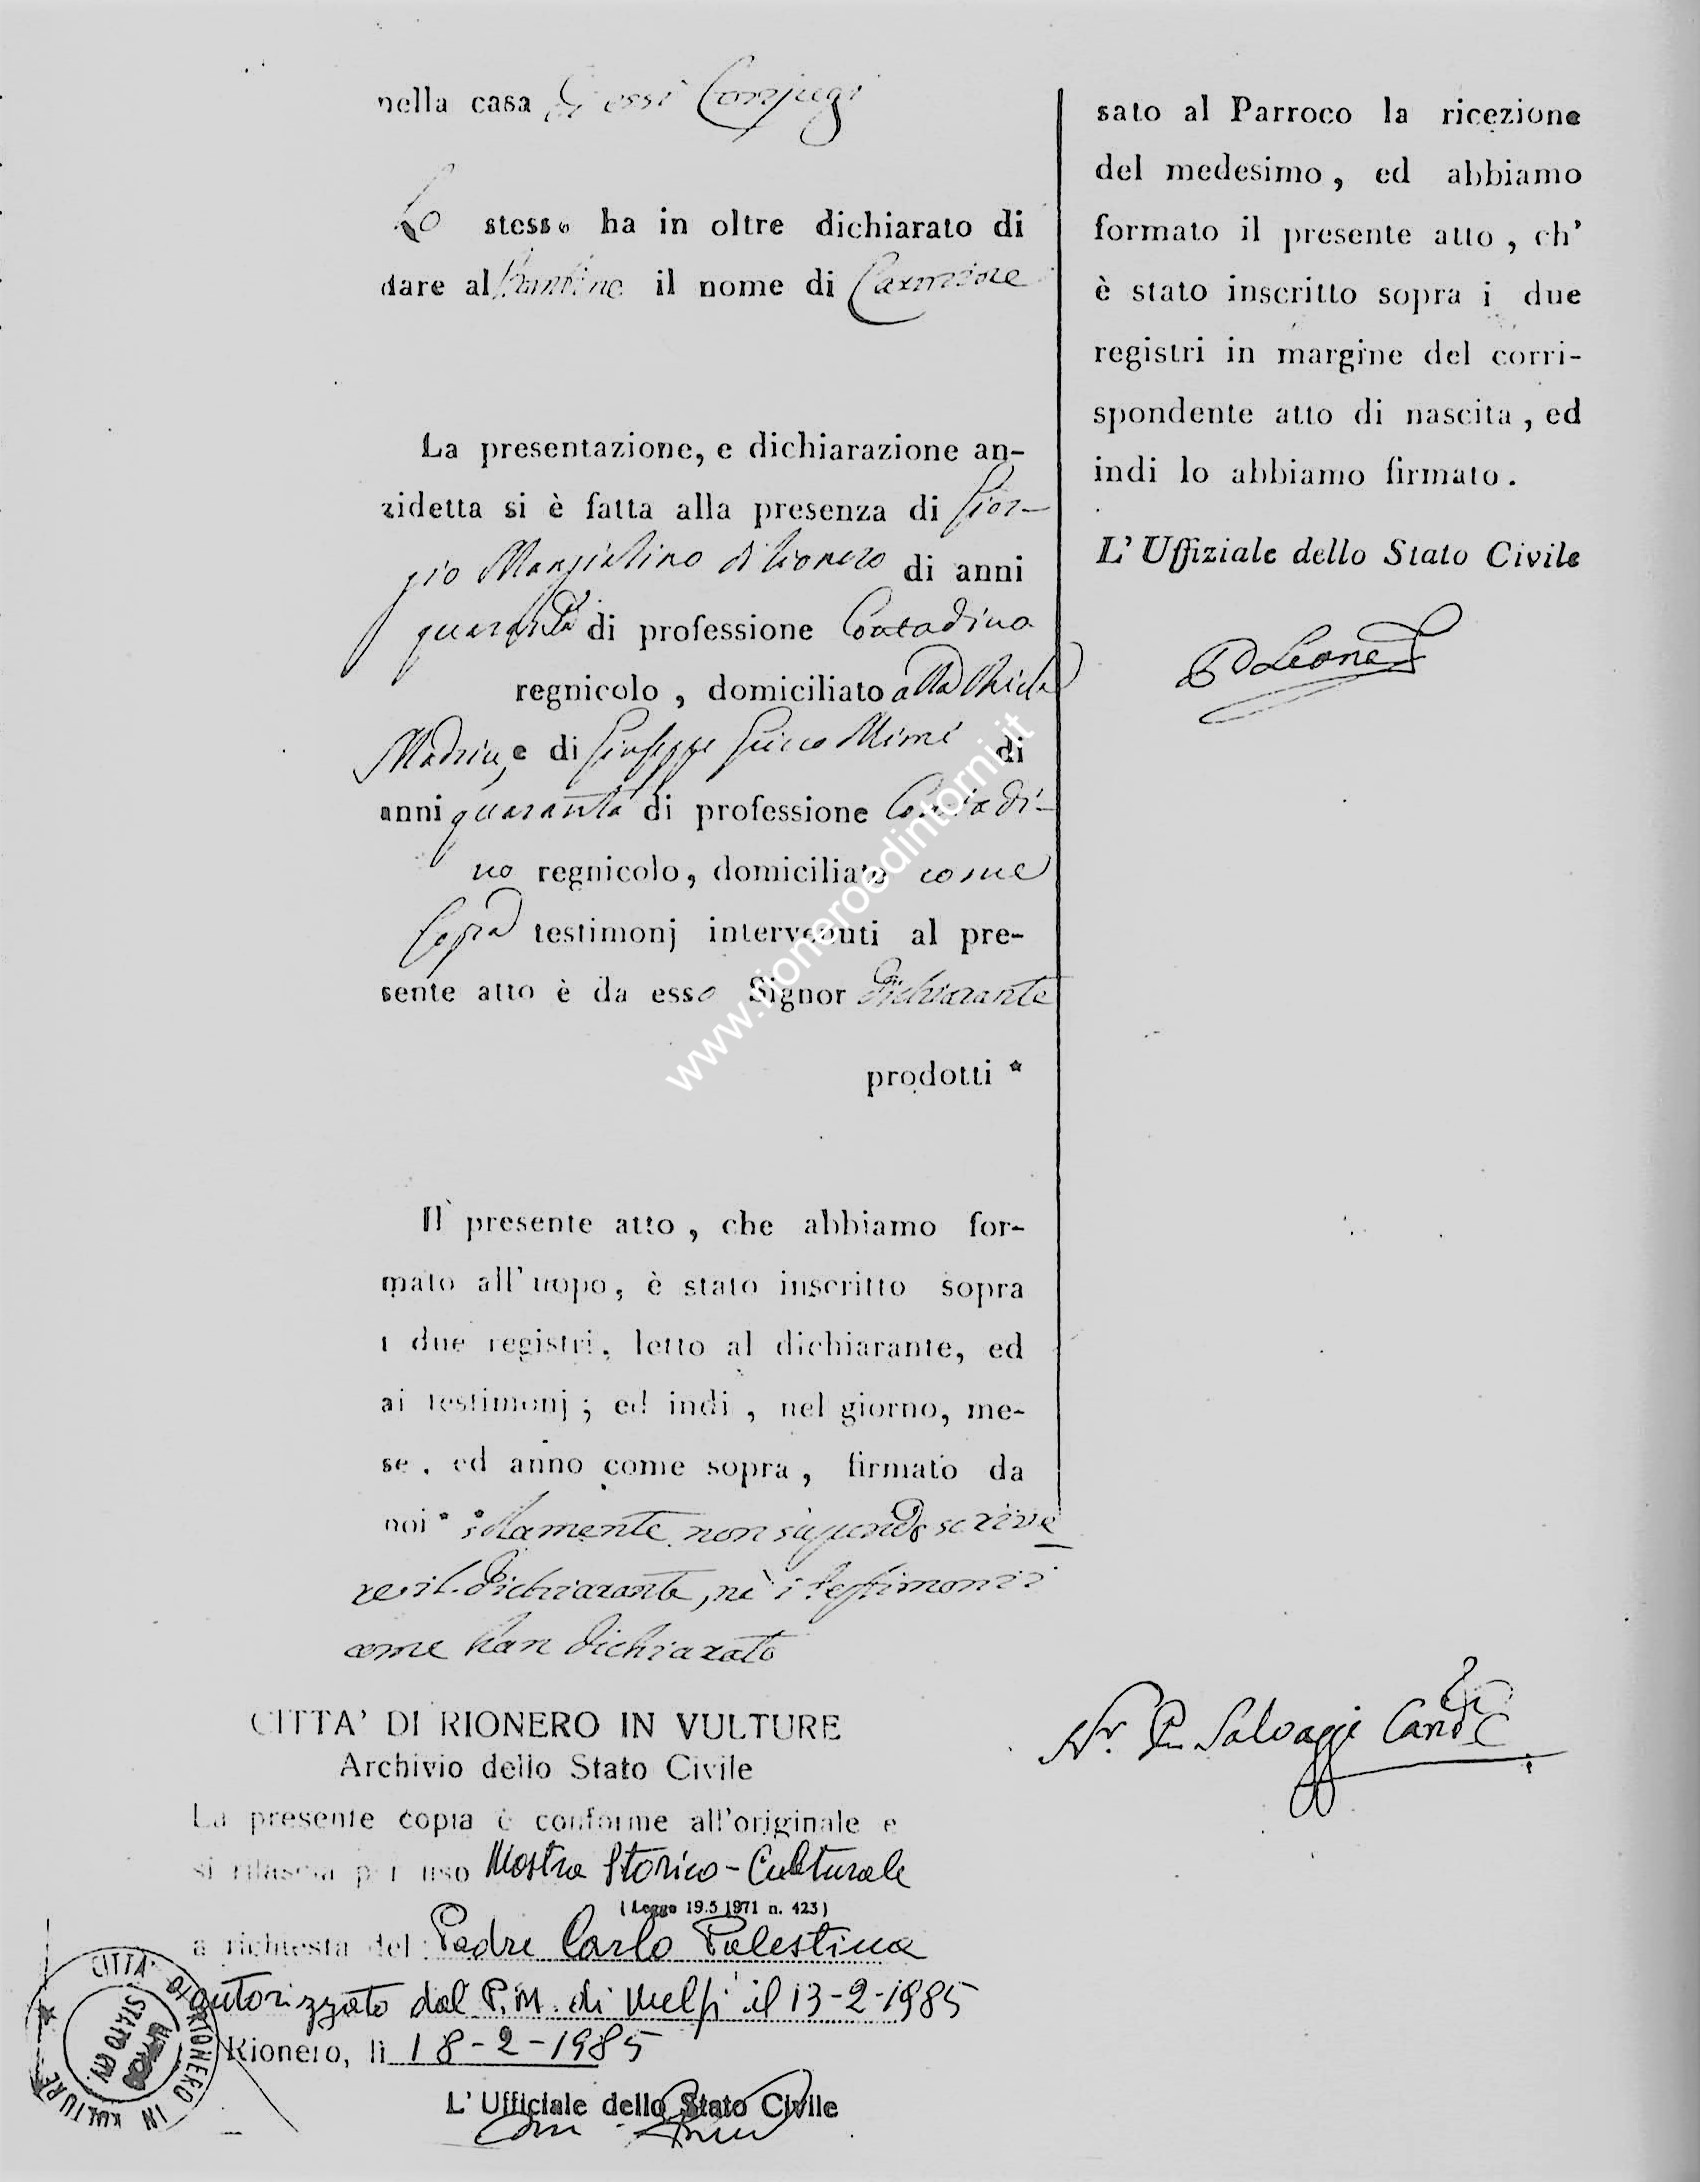 nella casa di essi Conjugi
Lo stesso ha in oltre dichiarato di
dare al Bambino il nome di Carmine
La presentazione, e dichiarazione an-
zidetta si è fatta alla presenza di Gior-
gio di
di anni
quaranta di professione Contadino
regnicolo, domiciliato alla Chiesa
Madrice, e di Giuseppe di
anni quaranta di professione Contadi-
no regnicolo, domiciliato come
sopra testimonj intervenuti al pre-
sente atto è da esso Signor dichiarante
prodotti *
Il presente atto, che abbiamo for-
mato all' uopo, è stato inscritto sopra
i due registri, letto al dichiarante, ed
ai testimonj; ed indi, nel giorno, me-
se, ed anno come sopra, firmato da
noi * solamente non sapendo scrive
re il dichiarante, nè i testimonii
come han dichiarato
sato al Parroco la ricezione
del medesimo, ed abbiamo
formato il presente atto, ch'
è stato inscritto sopra i due
registri in margine del corri-
spondente atto di nascita, ed
indi lo abbiamo firmato.
L' Uffiziale dello Stato Civile
Leone
Salvaggi
CITTA' DI RIONERO IN VULTURE
Archivio dello Stato Civile
La presente copia è conforme all'originale e
si rilascia per uso Mostra Storico-Culturale
(Legge 19.5 1971 n. 423)
a richiesta del Padre Carlo Palestina
autorizzato dal P.M. di Melfi il 13-2-1985
Rionero, lì 18-2-1985
L' Ufficiale dello Stato Civile
CITTA' DI RIONERO IN VULTURE
STATO CIV.
www.rioneroedintorni.it